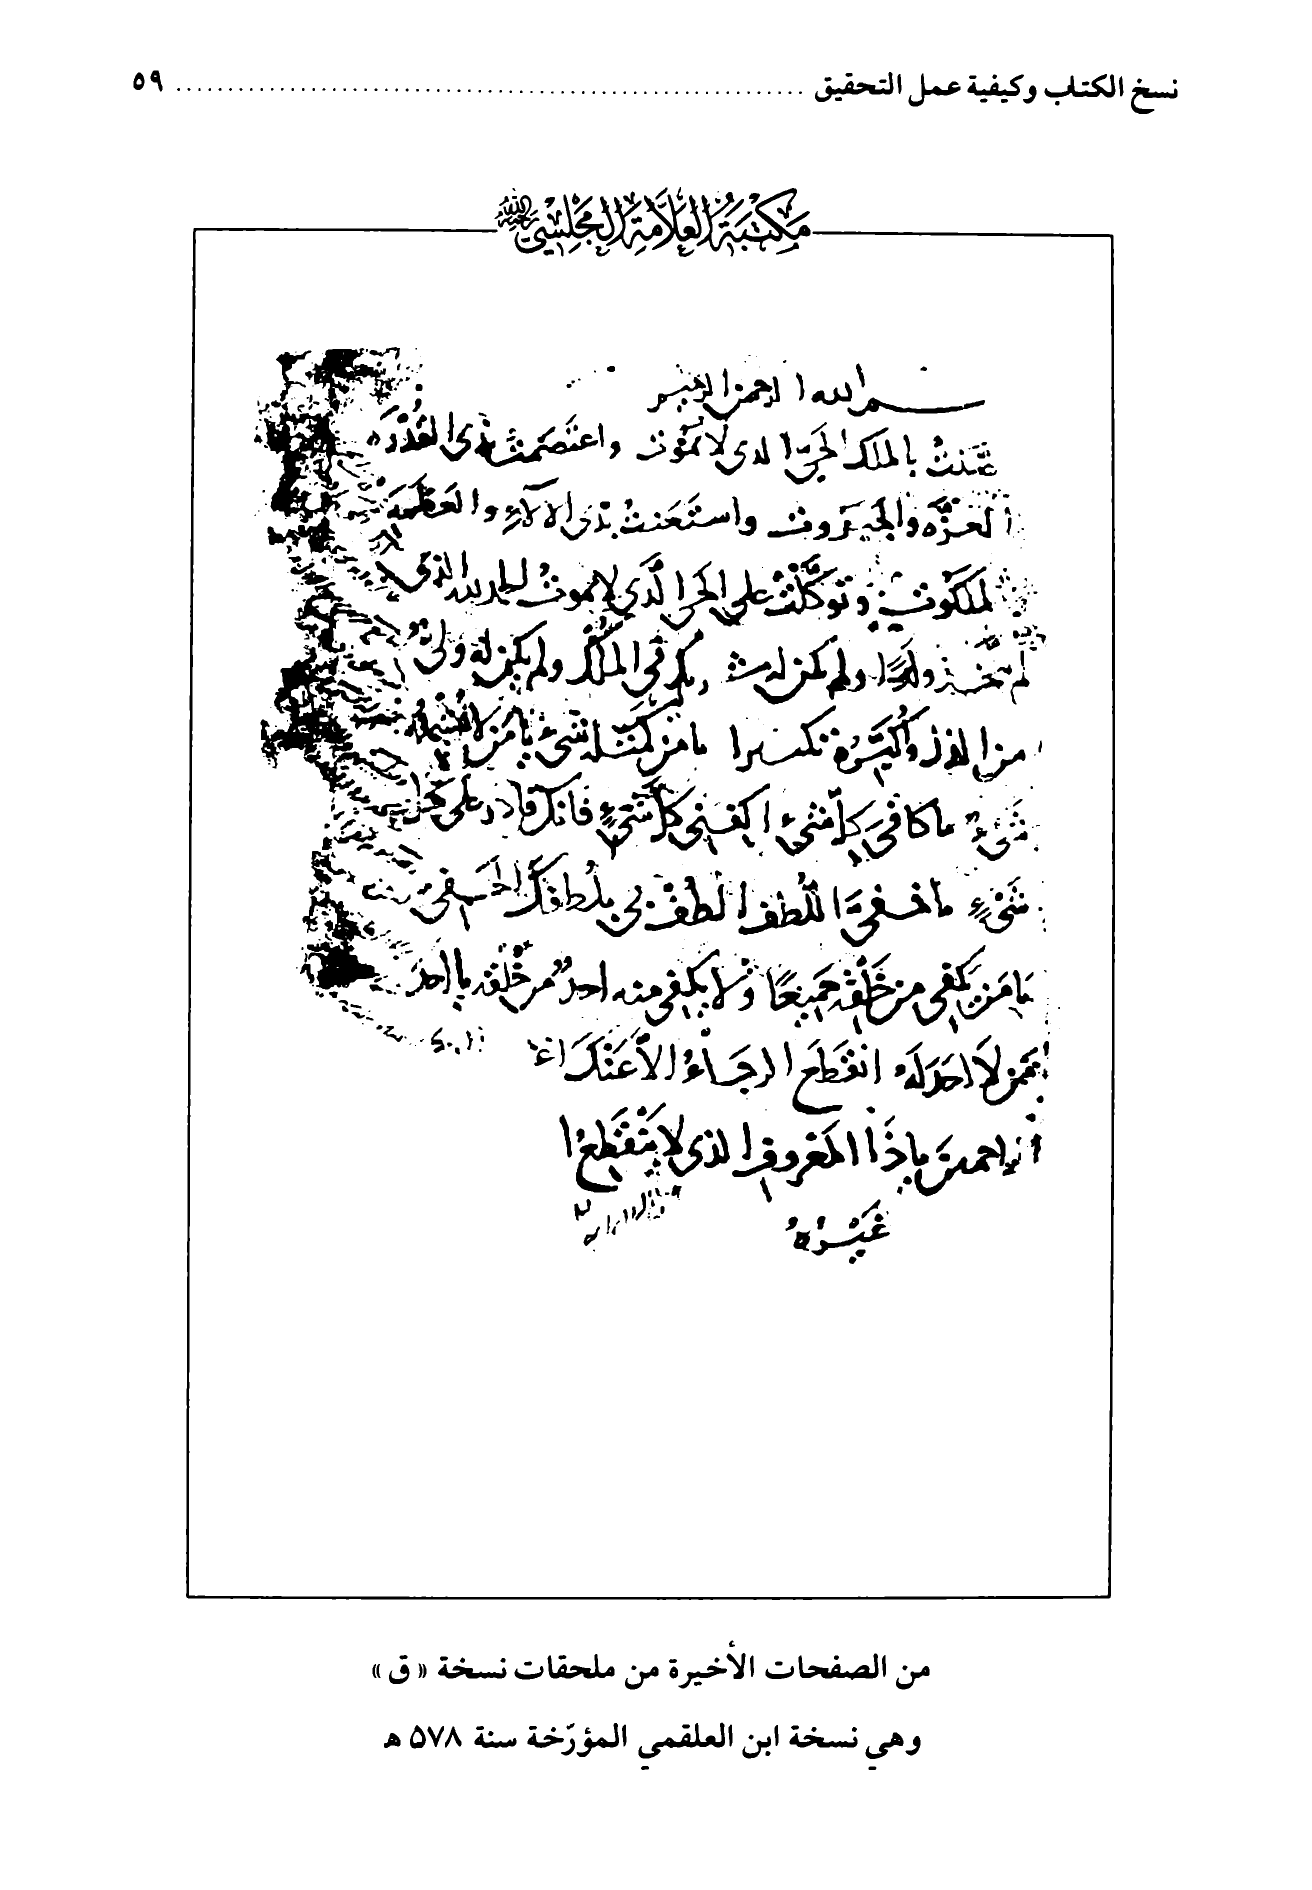 نسخ الكتاب وكيفية عمل التحقيق ........ ٥٩
مكتبة العلامة المجلسي رحمه الله
بسم الله الرحمن الرحيم
بالملك الحيّ الذي لا يموت واعتصمت بذي القدرة
العزّة والجبروت واستعنت بذي الآلاء والعظمة
لملكوت وتوكّلت على الحي الذي لا يموت الحمد لله الذي
لم يتخذ ولدًا ولم يكن له شريك في الملك ولم يكن له وليّ
من الذل وكبّره تكبيرا يا من كمثله شيء يا من لا يشبهه
شيء يا كافي كلّ شيء اكفني كلّ شيء فانك قادر على كل
شيء يا خفيّ اللطف الطف بي بلطفك الخفي
يا من يكفي من خلقه جميعًا ولا يكفي منه احدٌ من خلقه يا احد
من لا احد له انقطع الرجاء الا عنك
الراحمين يا ذا المعروف الذي لا ينقطع ا
غيره
من الصفحات الأخيرة من ملحقات نسخة « ق »
وهي نسخة ابن العلقمي المؤرّخة سنة ٥٧٨ ه